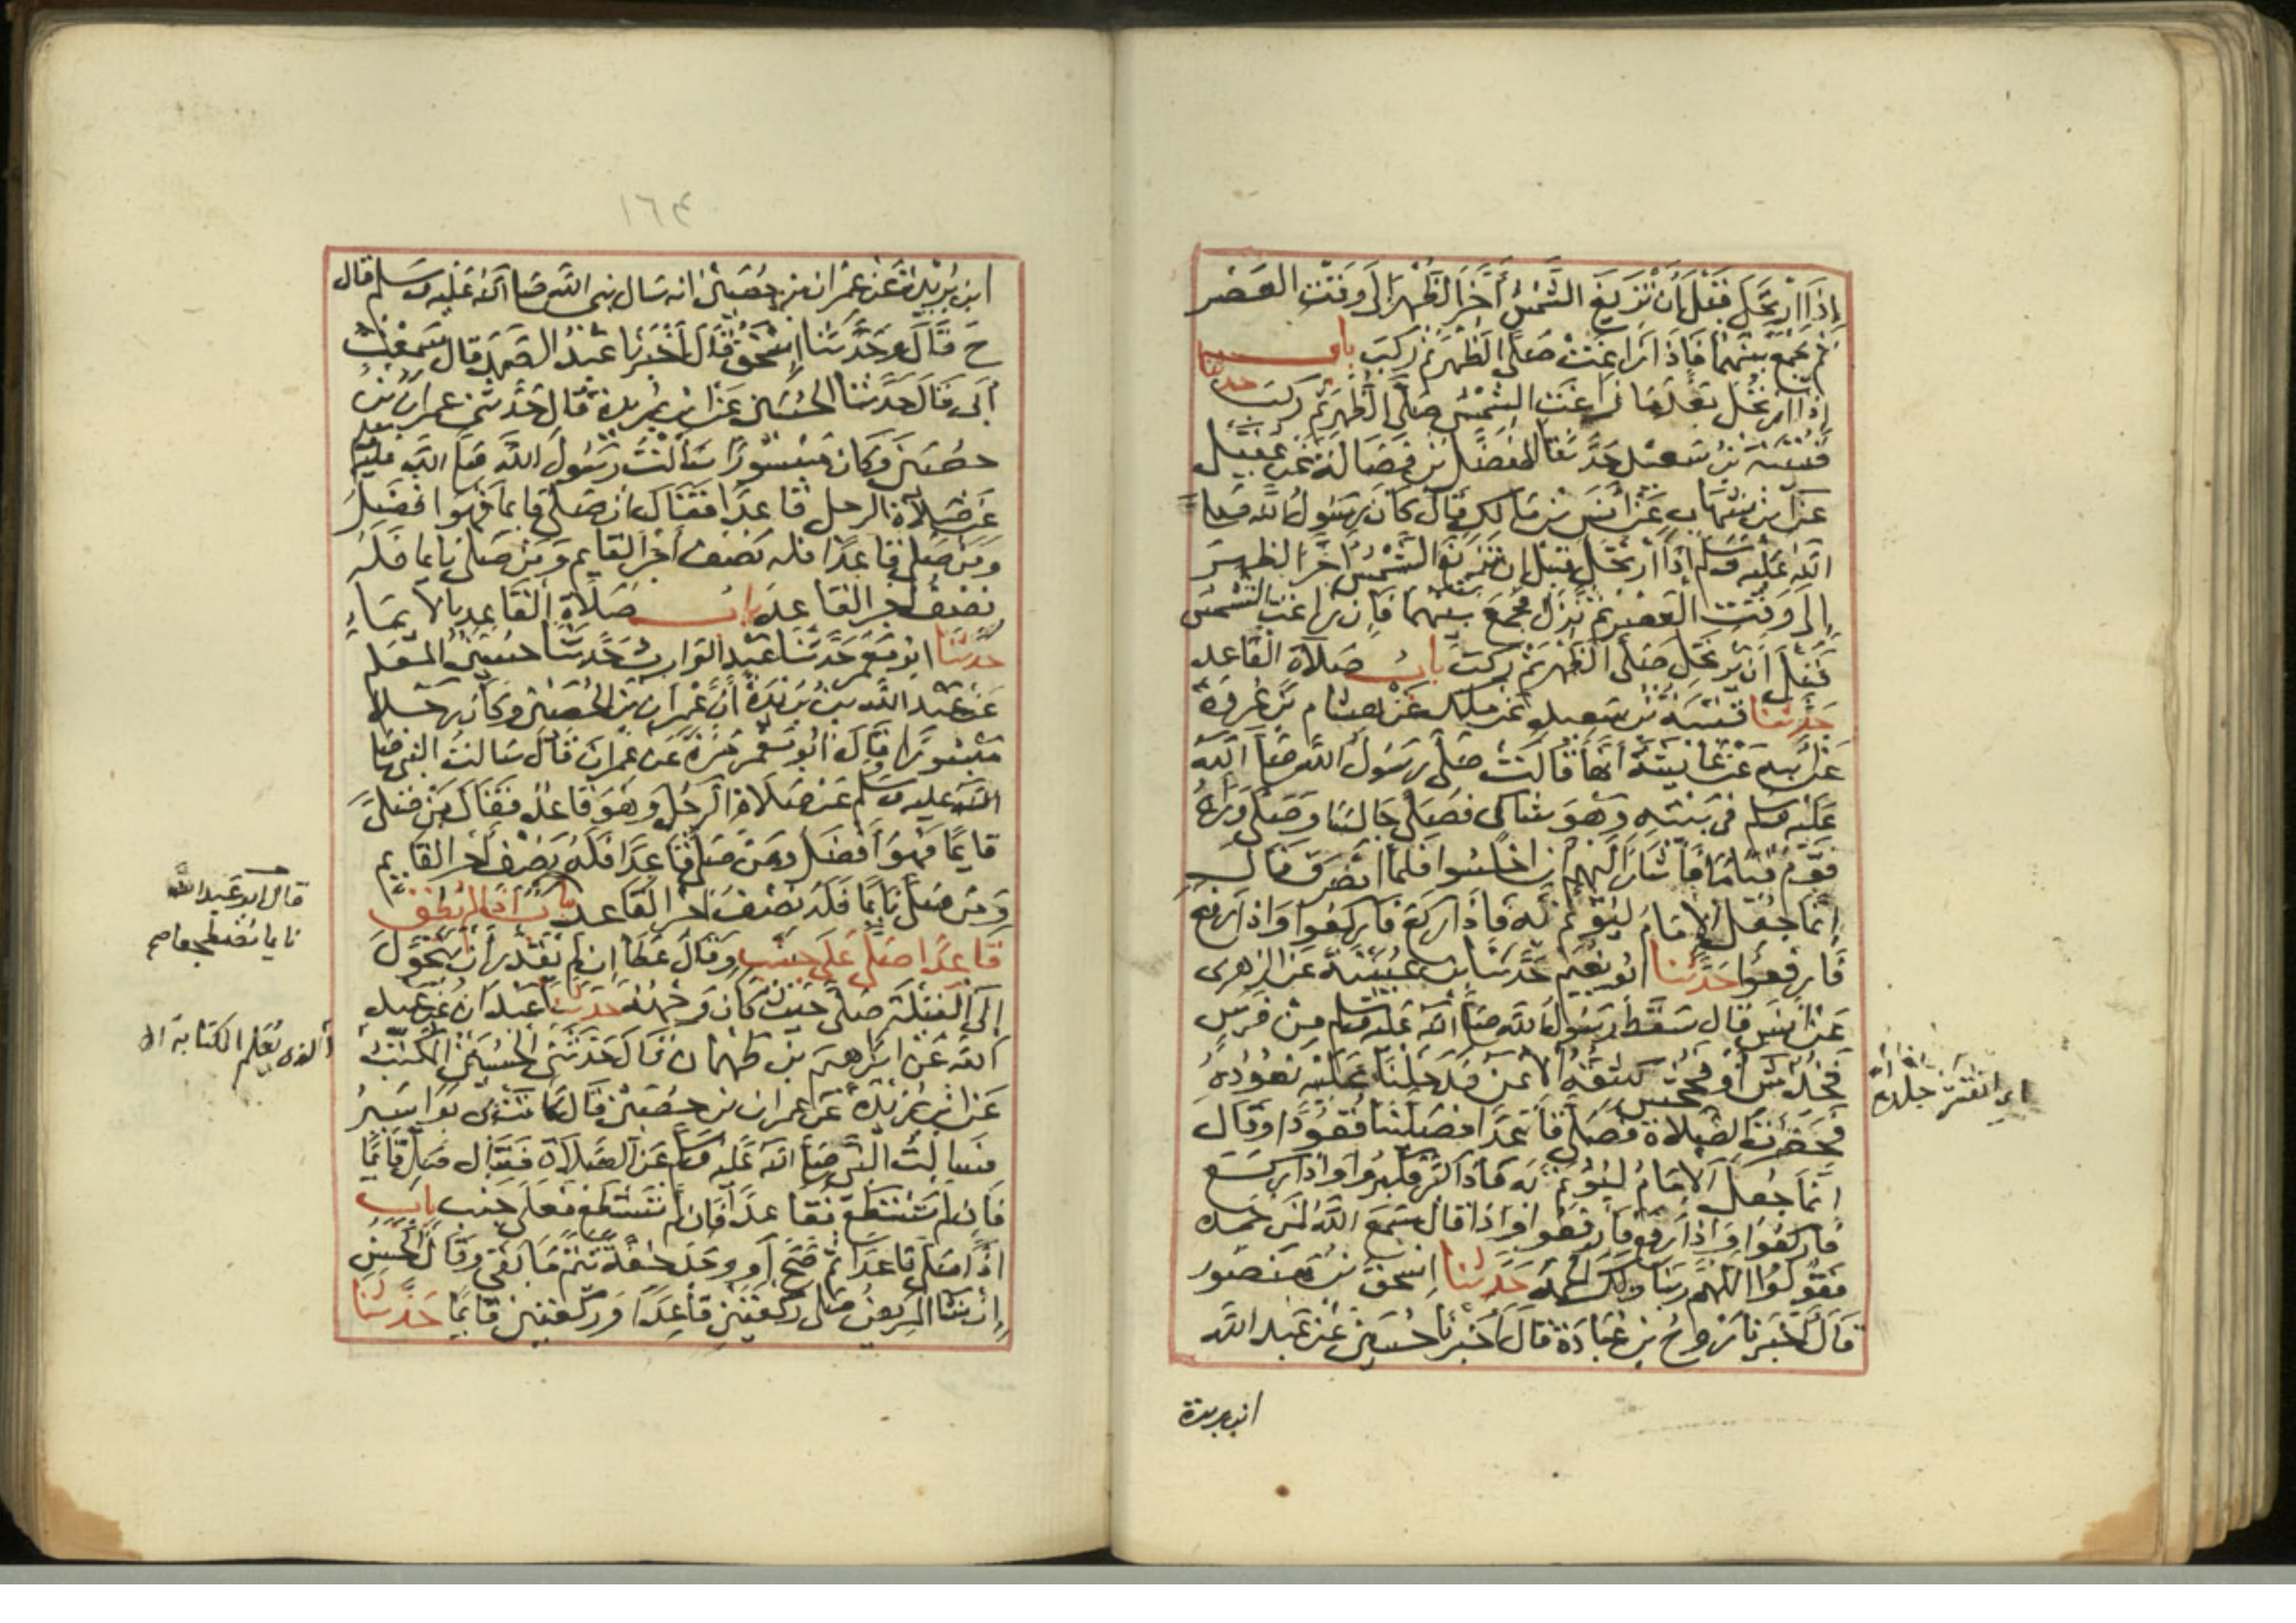 إذا ارتحل قبل أن تزيغ الشمس أخر الظهر إلى وقت العصر
ثم يجمع بينهما فإذا زاغت صلى الظهر ثم ركب باب
إذا ارتحل بعد ما زاغت الشمس صلى الظهر ثم ركب حدثنا
قتيبة بن سعيد حدثنا المفضل بن فضالة عن عقيل
عن ابن شهاب عن أنس بن مالك قال كان رسول الله صلى
الله عليه وسلم إذا ارتحل قبل ان تزيغ الشمس أخر الظهر
إلى وقت العصر ثم نزل فجمع بينهما فإن زاغت الشمس
قبل أن يرتحل صلى الظهر ثم ركب باب صلاة القاعد
حدثنا قتيبة بن سعيد عن ملك عن هشام بن عروة
عن أبيه عن عائشة أنها قالت صلى رسول الله صلى الله
عليه وسلم في بيته وهو شاكى فصلى جالسا وصلى وراءه
قوم قياما فأشار إليهم ان اجلسوا فلما انصرف قال
إنما جعل الإمام ليؤتم به فإذا ركع فاركعوا وإذا رفع
فارفعوا حدثنا أبو نعيم حدثنا ابن عيينة عن الزهرى
عن أنس قال سقط رسول الله صلى الله عليه وسلم من فرس
فخدش أو فجحش شقه الأيمن فدخلنا عليه نعوده
فحضرت الصلاة فصلى قاعدا فصلينا قعودا وقال
انما جعل الإمام ليؤتم به فاذا كبر فكبروا وإذا ركع
فاركعوا وإذا رفع فارفعوا وإذا قال سمع الله لمن حمده
فقولوا اللهم ربنا ولك الحمد حدثنا إسحق بن منصور
قال أخبرنا روح بن عبادة قال أخبرنا حسين عن عبد الله
ابن بريدة
أي انقشر جلده
١٦٤
ابن بريدة عن عمران بن حصين انه سال نبي الله صلى الله عليه وسلم قال
ح قال وحدثنا إسحق قال أخبرنا عبد الصمد قال سمعت
أبى قال حدثنا الحسين عن ابن بريدة قال حدثنى عمران بن
حصين وكان مبسورا سألت رسول الله صلى الله عليه وسلم
عن صلاة الرجل قاعدا فقال ان صلى قايما فهو افضل
ومن صلى قاعدا فله نصف أجر القايم ومن صلى نايما فله
نصف أجر القاعد باب صلاة القاعد بالايماء
حدثنا ابو معمر حدثنا عبد الوارث حدثنا حسين المعلم
عن عبد الله بن بريدة أن عمران بن الحصين وكان رجلا
مبسورا وقال أبو معمر مرة عن عمران قال سالت النبي صلى
الله عليه وسلم عن صلاة الرجل وهو قاعد فقال من صلى
قايما فهو أفضل ومن صلى قاعدا فله نصف أجر القايم
ومن صلى نايما فله نصف أجر القاعد باب إذا لم يطق
قاعدا صلى على جنب وقال عطا إن لم يقدر أن يتحول
إلى القبلة صلى حيث كان وجهه حدثنا عبدان عن عبد
الله عن ابراهيم بن طهمان قال حدثنى الحسين المكتب
عن ابن بريدة عن عمران بن حصين قال كانت بى بواسير
فسالت النبي صلى الله عليه وسلم عن الصلاة فقال صل قائما
فإن لم تستطع فقاعدا فإن لم تستطع فعلى جنب باب
اذا صلى قاعدا ثم صح أو وجد خفة تتم ما بقى وقال الحسن
إن شا المريض صلى ركعتين قاعدا وركعتين قايما حدثنا
قال ابو عبد الله
نايما مضطجعا صح
الذى يعلم الكتابة